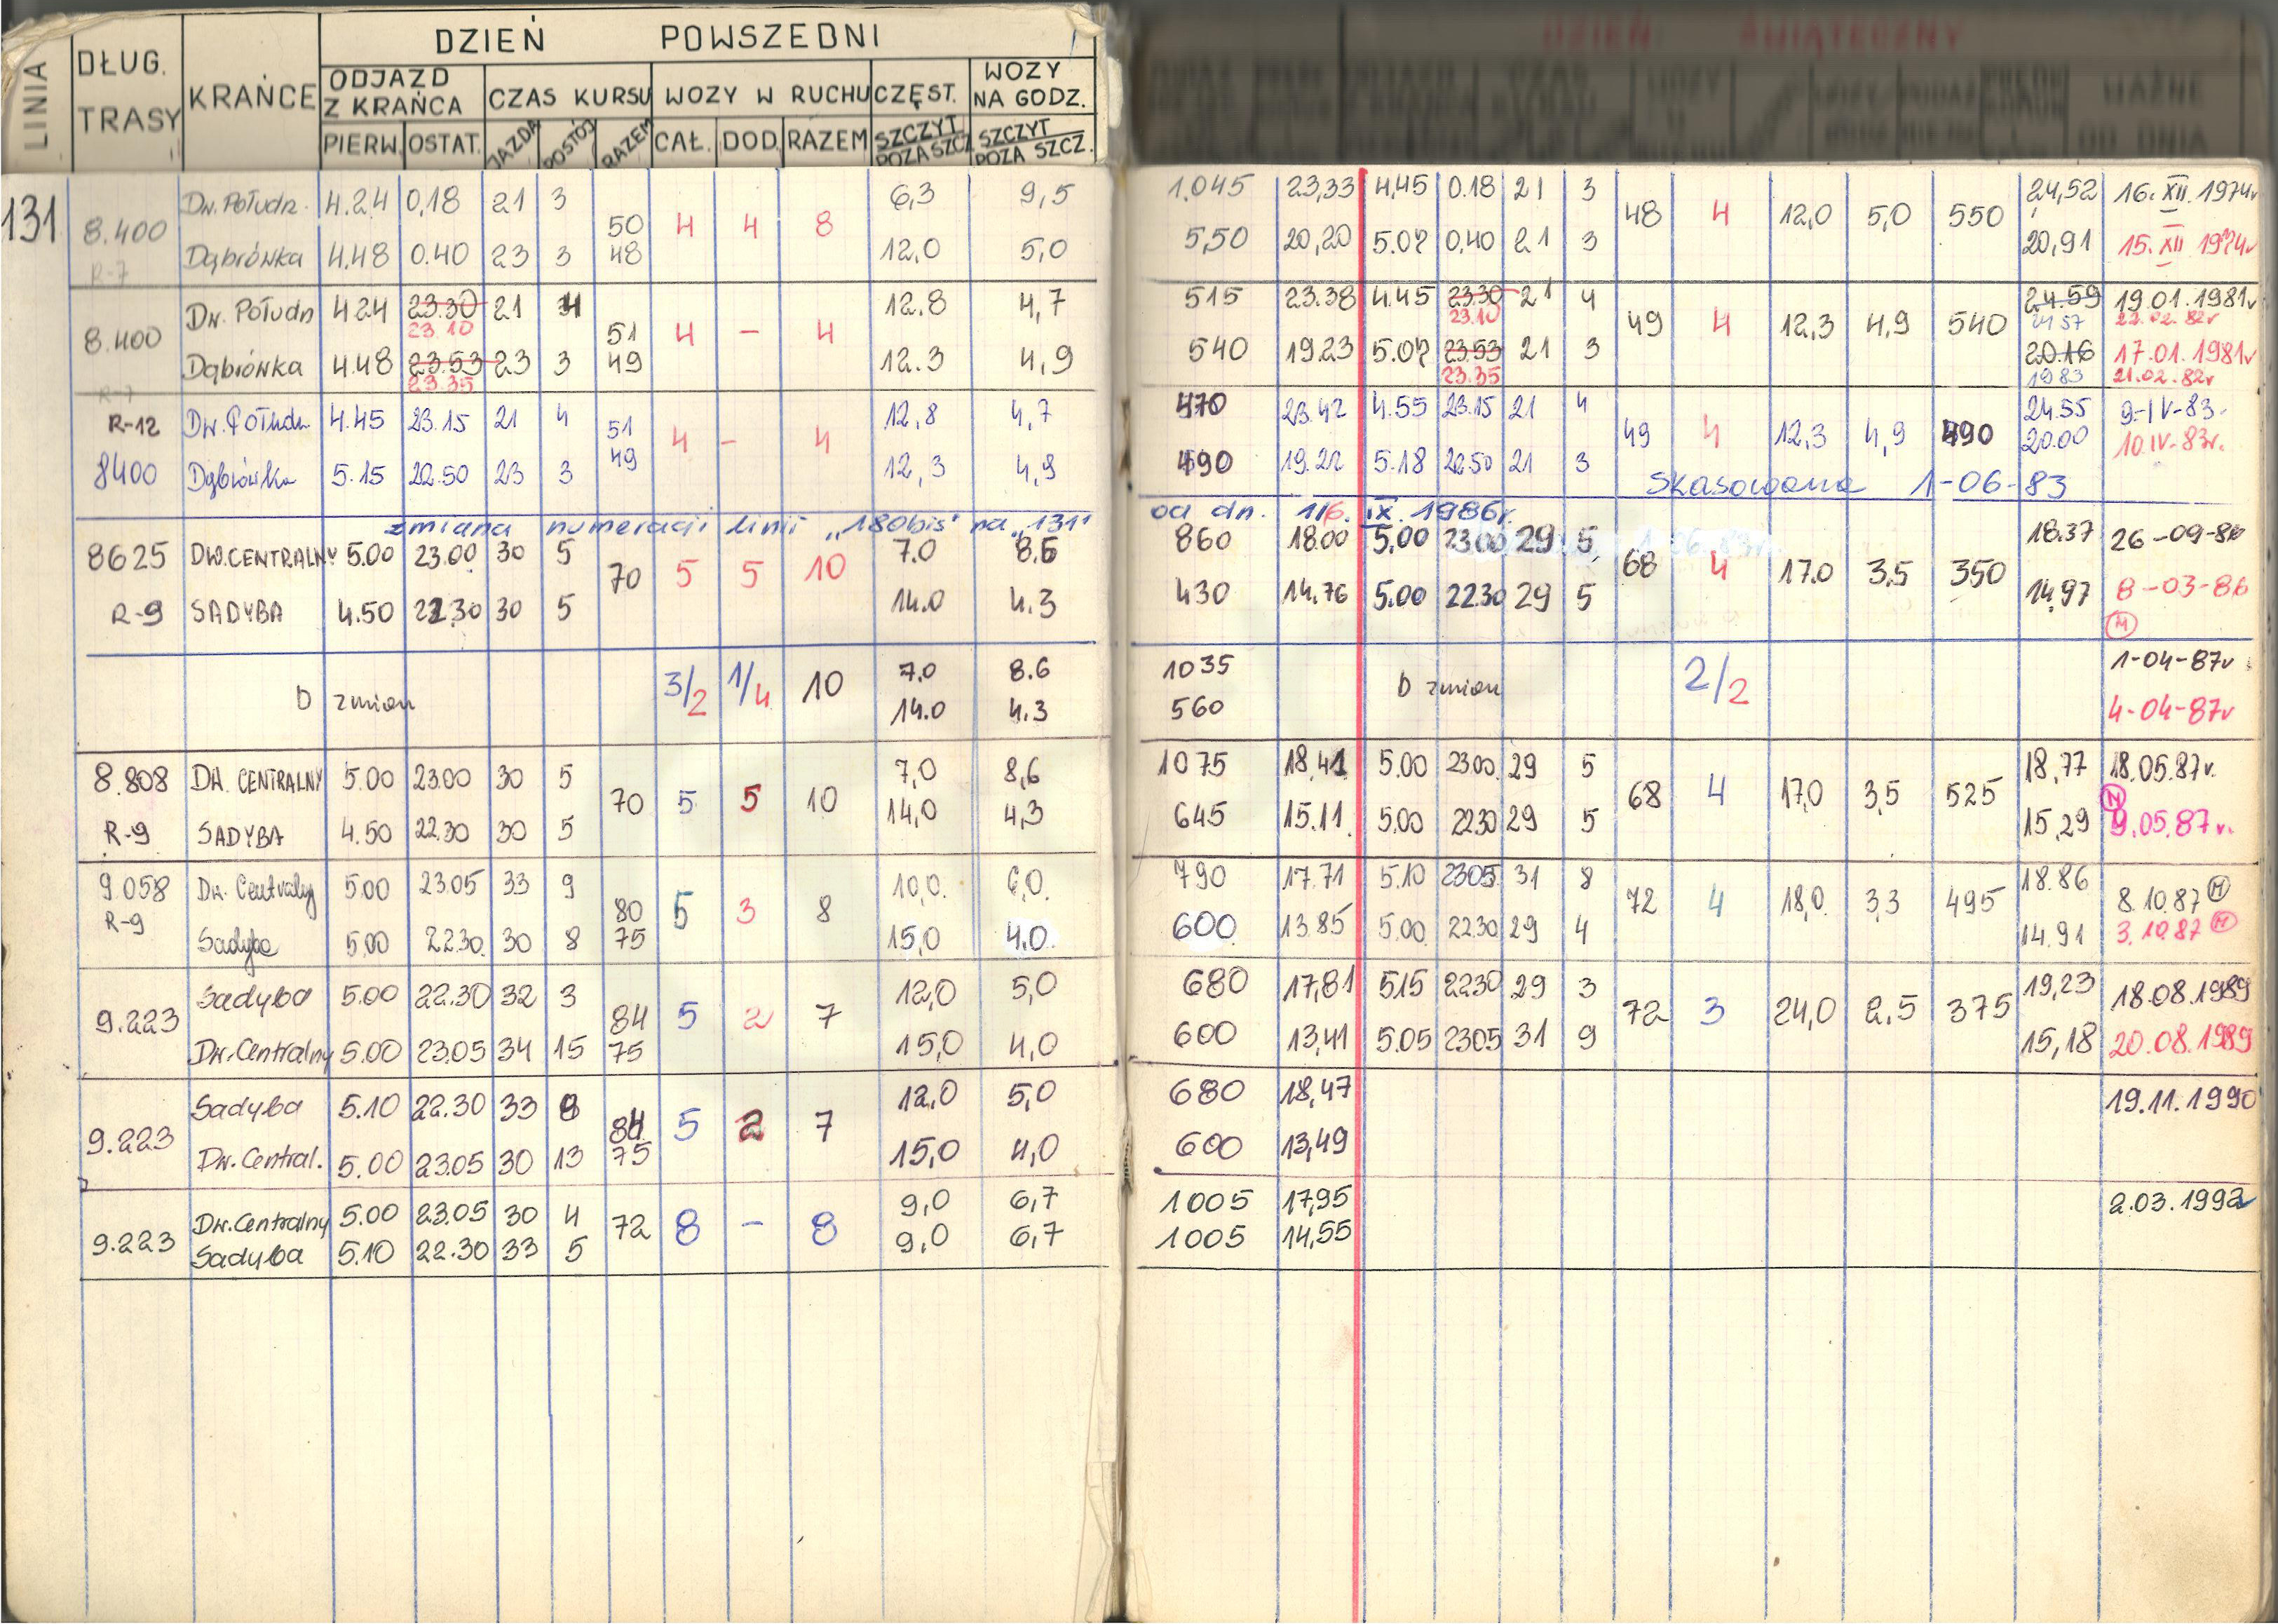 DZIEŃ POWSZEDNI
LINIA DŁUG. TRASY KRAŃCE ODJAZD Z KRAŃCA CZAS KURSU WOZY W RUCHU CZĘST. WOZY NA GODZ.
PIERW. OSTAT. JAZDA POSTÓJ RAZEM CAŁ. DOD. RAZEM SZCZYT POZA SZCZ. SZCZYT POZA SZCZ.
DZIEŃ ŚWIĄTECZNY
WAŻNE OD DNIA
131
8.400 Dw. Połudn. 4.24 0,18 21 3 50 4 4 8 6,3 9,5 1.045 23,33 4,45 0.18 21 3 48 4 12,0 5,0 550 24,52 16. XII. 1974r
R-7 Dąbrówka 4.48 0.40 23 3 48 12.0 5,0 5,50 20,20 5.07 0,40 21 3 20,91 15. XII 1974r
8.400 Dw. Połudn 4.24 23.30 21 4 51 4 – 4 12.8 4,7 515 23.38 4.45 23.30 21 4 49 4 12,3 4,9 540 24.59 19.01.1981r
23.10 23.10 24 57 22.02.82r
Dąbrówka 4.48 23.53 23 3 49 12.3 4,9 540 19.23 5.07 23.53 21 3 20.16 17.01.1981r
R-7 23.35 23.35 19 83 21.02.82r
R-12 Dw. Połudn 4.45 23.15 21 4 51 4 – 4 12,8 4,7 470 23.42 4.55 23.15 21 4 49 4 12,3 4,9 490 24.55 9-IV-83
8400 Dąbrówka 5.15 22.50 23 3 49 12,3 4,9 490 19.22 5.18 22.50 21 3 20.00 10.IV-83r.
Skasowana 1-06-83
zmiana numeracji linii „180bis" na „131" od dn. 1/6. IX. 1986r.
8625 DW.CENTRALNY 5.00 23.00 30 5 70 5 5 10 7.0 8.6 860 18.00 5.00 23.00 29 5 68 4 17.0 3,5 350 18.37 26-09-86
R-9 SADYBA 4.50 22.30 30 5 14.0 4.3 430 14.76 5.00 22.30 29 5 14,97 8-03-86
M
b zmian 3/2 1/4 10 7.0 8.6 1035 b zmian 2/2 1-04-87r
14.0 4.3 560 4-04-87r
8.808 DW. CENTRALNY 5.00 23.00 30 5 70 5 5 10 7,0 8,6 1075 18,41 5.00 23.00 29 5 68 4 17,0 3,5 525 18,77 18.05.87r.
R-9 SADYBA 4.50 22.30 30 5 14,0 4,3 645 15.11 5.00 22.30 29 5 15,29 9.05.87r.
9.058 Dw. Centralny 5.00 23.05 33 9 80 5 3 8 10,0 6,0 790 17.71 5.10 23.05 31 8 72 4 18,0 3,3 495 18.86 8.10.87 M
R-9 Sadyba 5.00 22.30 30 8 75 15,0 4,0 600 13.85 5.00 22.30 29 4 14.91 3.10.87 M
9.223 Sadyba 5.00 22.30 32 3 84 5 2 7 12,0 5,0 680 17,81 5.15 22.30 29 3 72 3 24,0 2,5 375 19,23 18.08.1989
Dw.Centralny 5.00 23.05 34 15 75 15,0 4,0 600 13,41 5.05 23.05 31 9 15,18 20.08.1989
9.223 Sadyba 5.10 22.30 33 8 84 5 2 7 12,0 5,0 680 18,47 19.11.1990
Dw.Central. 5.00 23.05 30 13 75 15,0 4,0 600 13,49
9.223 Dw.Centralny 5.00 23.05 30 4 72 8 – 8 9,0 6,7 1005 17,95 2.03.1992r
Sadyba 5.10 22.30 33 5 9,0 6,7 1005 14,55